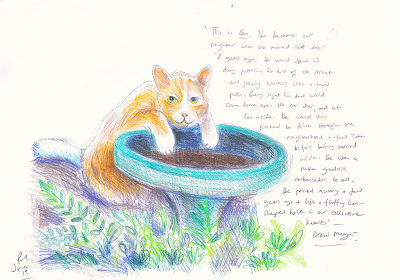 "This is Leo. He became our
neighbour when we moved next door
8 years ago. He would spend his
days patrolling his end of the street
and gracing visitors with a few
pats. Every night his dad would
come home, open the car door, and let
Leo inside. He would then
proceed to be driven through the
neighborhood a few times
before being carried
inside. He was a
goodwill
ambassador to all.
He passed away a few
years ago & left a fluffy Leo-
shaped hole in our collective
hearts."
Drew Meger